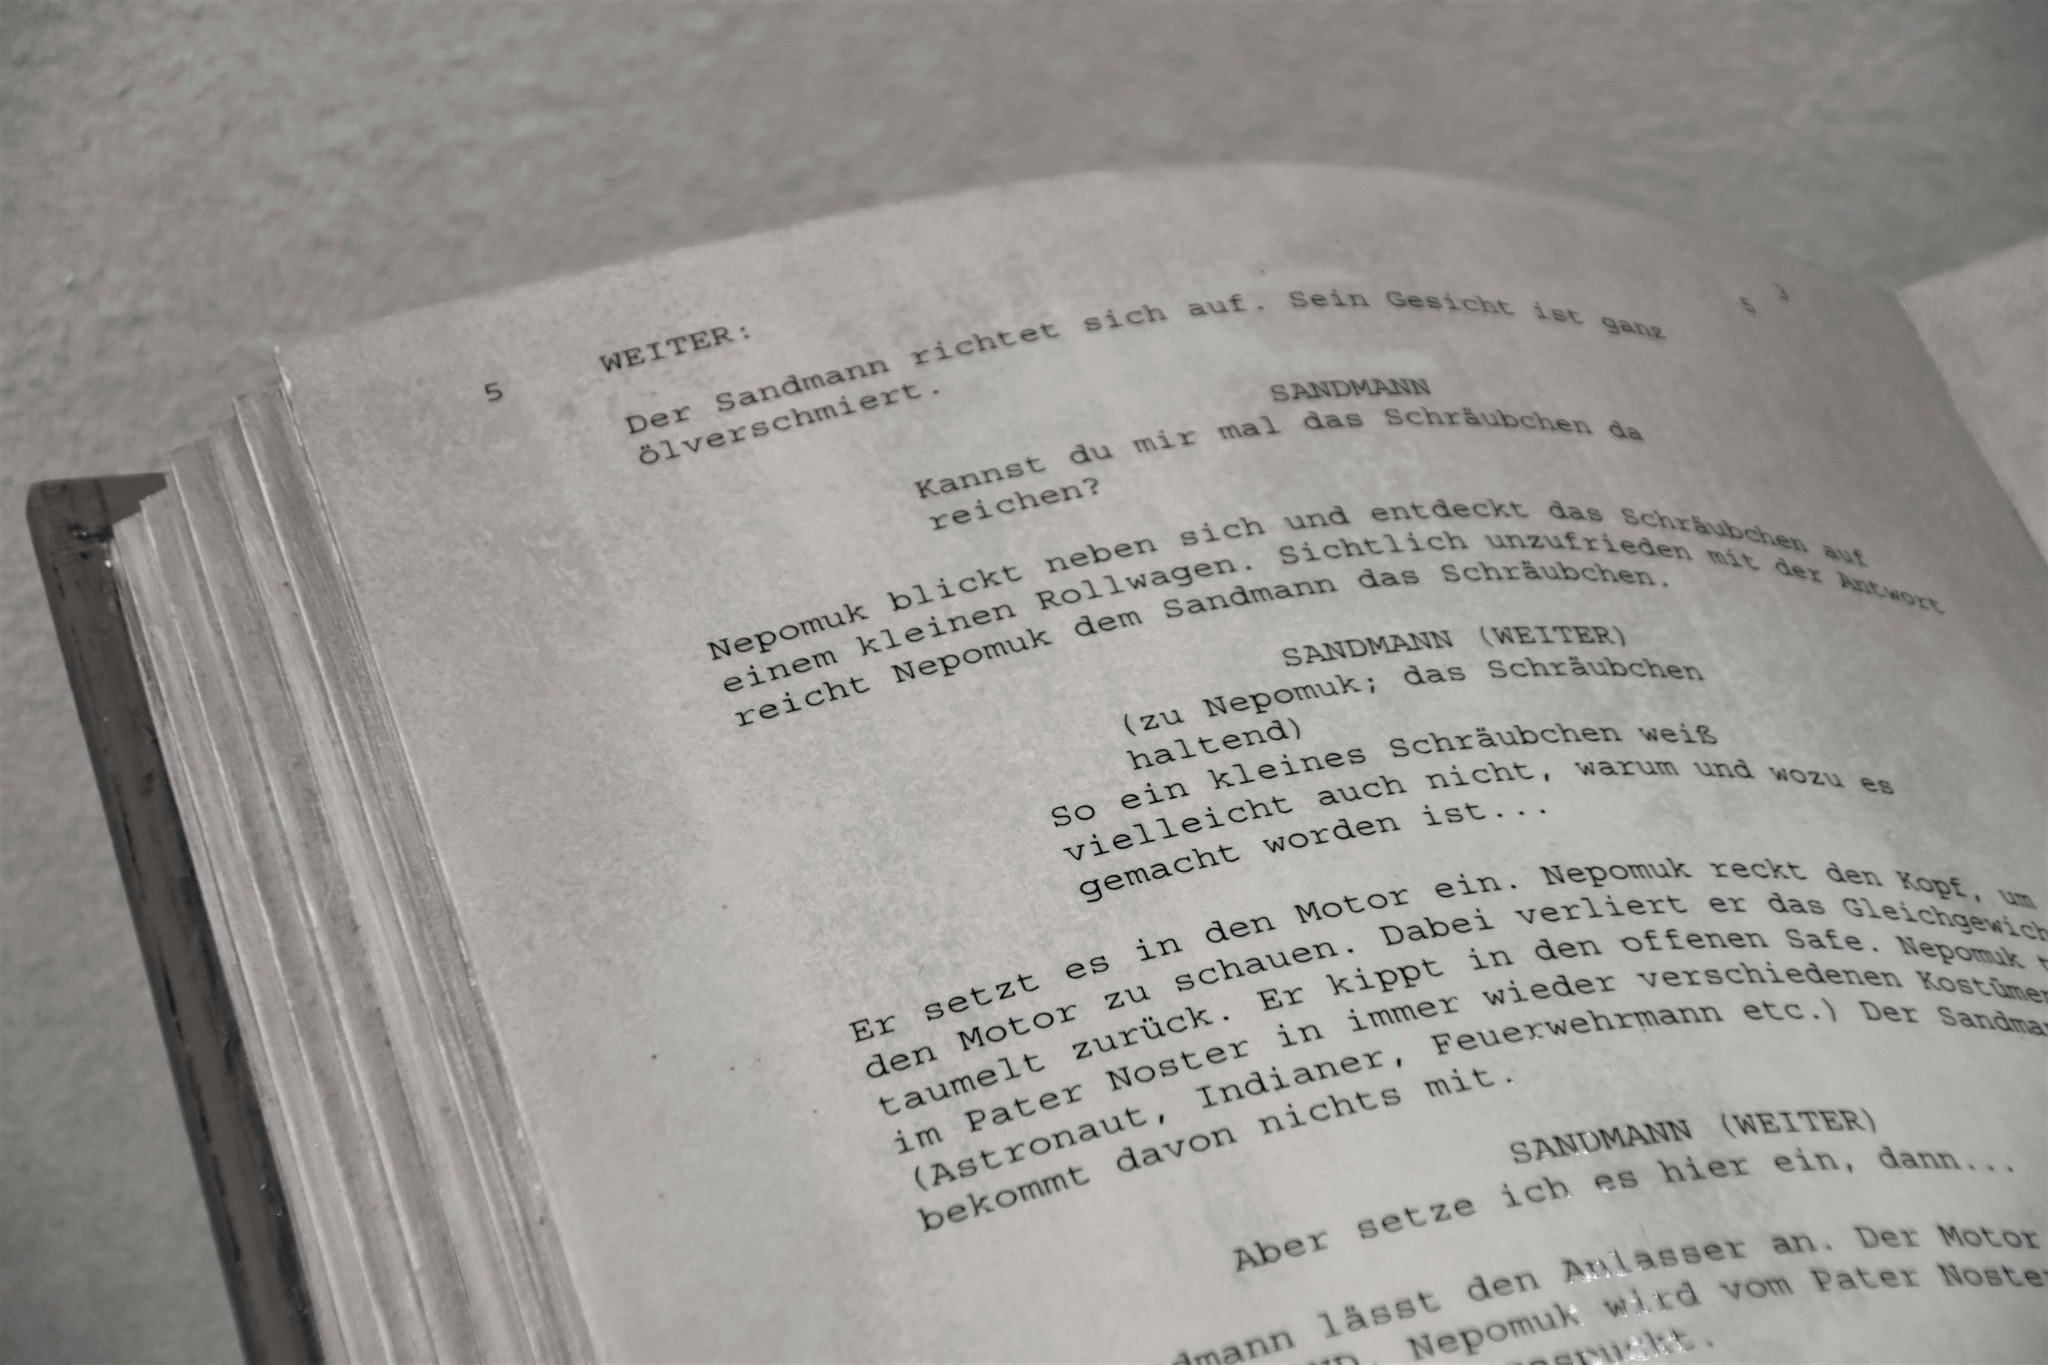 3
5 WEITER: 5
Der Sandmann richtet sich auf. Sein Gesicht ist ganz
ölverschmiert.
SANDMANN
Kannst du mir mal das Schräubchen da
reichen?
Nepomuk blickt neben sich und entdeckt das Schräubchen auf
einem kleinen Rollwagen. Sichtlich unzufrieden mit der Antwort
reicht Nepomuk dem Sandmann das Schräubchen.
SANDMANN (WEITER)
(zu Nepomuk; das Schräubchen
haltend)
So ein kleines Schräubchen weiß
vielleicht auch nicht, warum und wozu es
gemacht worden ist...
Er setzt es in den Motor ein. Nepomuk reckt den Kopf, um
den Motor zu schauen. Dabei verliert er das Gleichgewich
taumelt zurück. Er kippt in den offenen Safe. Nepomuk t
im Pater Noster in immer wieder verschiedenen Kostümen
(Astronaut, Indianer, Feuerwehrmann etc.) Der Sandma
bekommt davon nichts mit.
SANDMANN (WEITER)
Aber setze ich es hier ein, dann...
dmann lässt den Anlasser an. Der Motor
Nepomuk wird vom Pater Noste